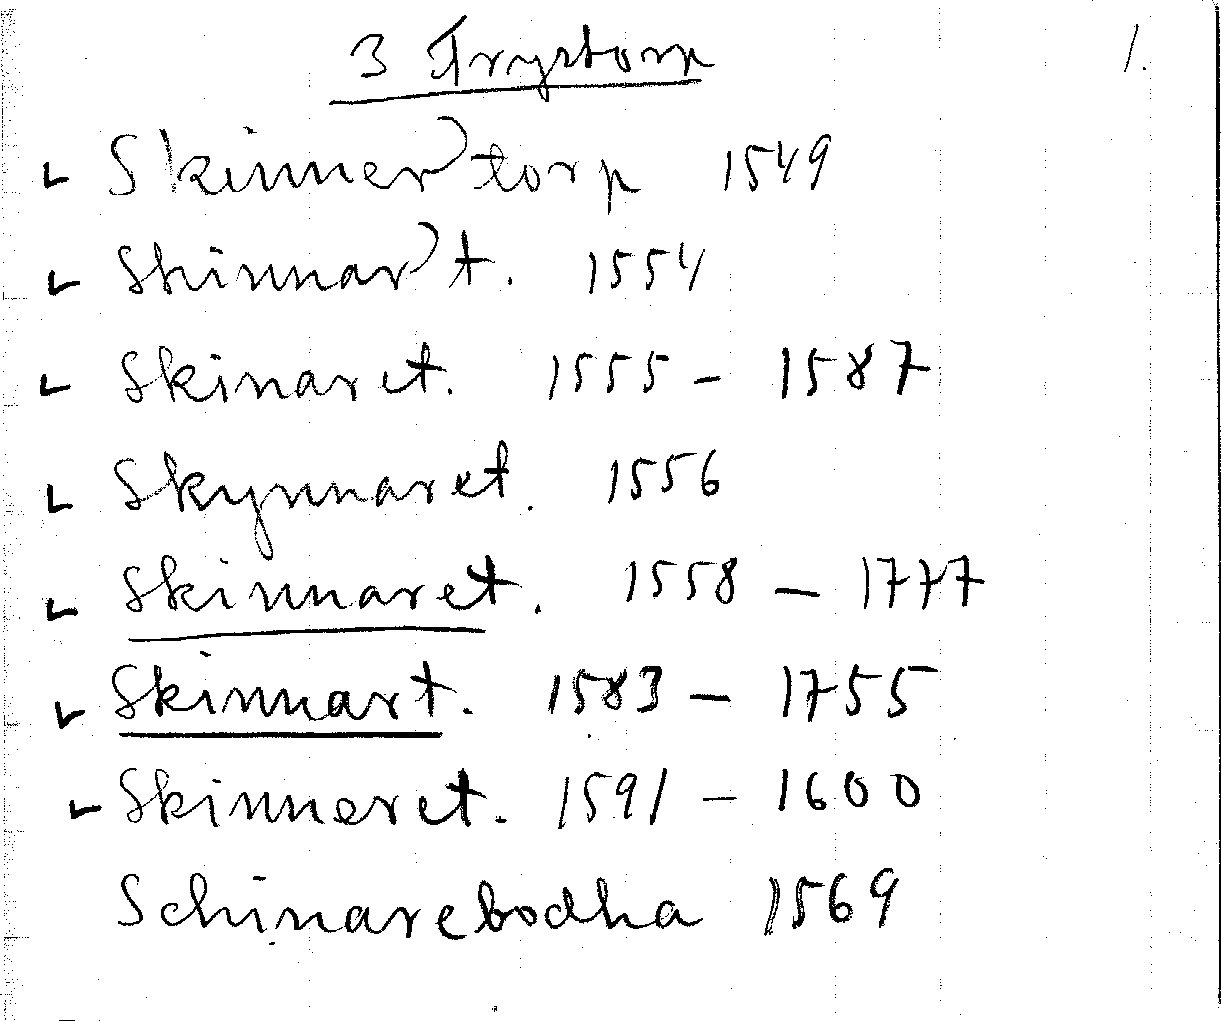 3 Frystorp 1.
Skinner torp 1549
Skinnar t. 1554
Skinaret. 1555 - 1587
Skynnaret. 1556
Skinnaret. 1558 - 1777
Skinnart. 1583 - 1755
Skinneret. 1591 - 1600
Schinarebodha 1569